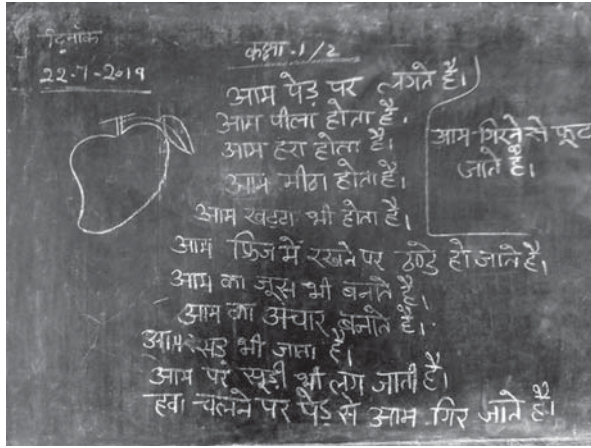 दिनाँक
22-7-2019
कक्षा-1/2
आम पेड़ पर लगते है।
आम पीला होता है।
आम हरा होता है।
आम मीठा होता है।
आम खट्टा भी होता है।
आम फ्रिज में रखने पर ठण्डे हो जाते है।
आम का जूस भी बनाते है।
आम का अचार बनाते है।
आम सड़ भी जाता है।
आम पर सूड़ी भी लग जाती है।
हवा चलने पर पेड़ से आम गिर जाते है।
आम गिरने से फूट
जाते है।